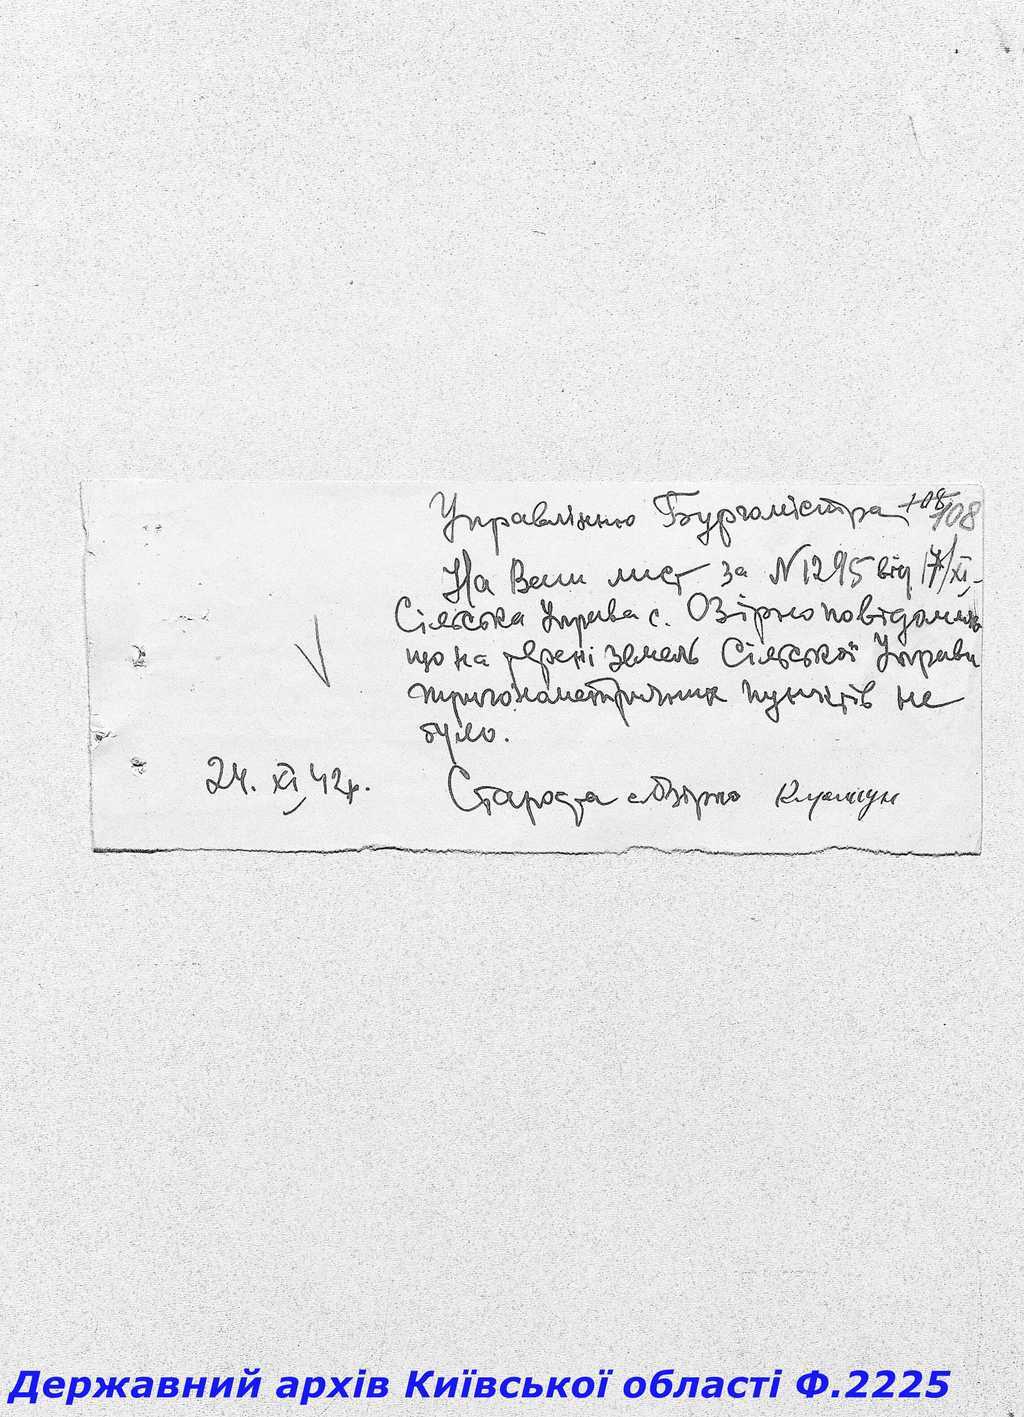 Управлінню Бургомістра 108 108
На Ваш лист за N1295 від 17/XI-
Сільська Управа с. Озірно повідомля
що на терені земель Сільської Управи
тригонаметричних пунктів не
було.
24. XI 42р. Староста с. Озірно
Державний архів Київської області Ф.2225